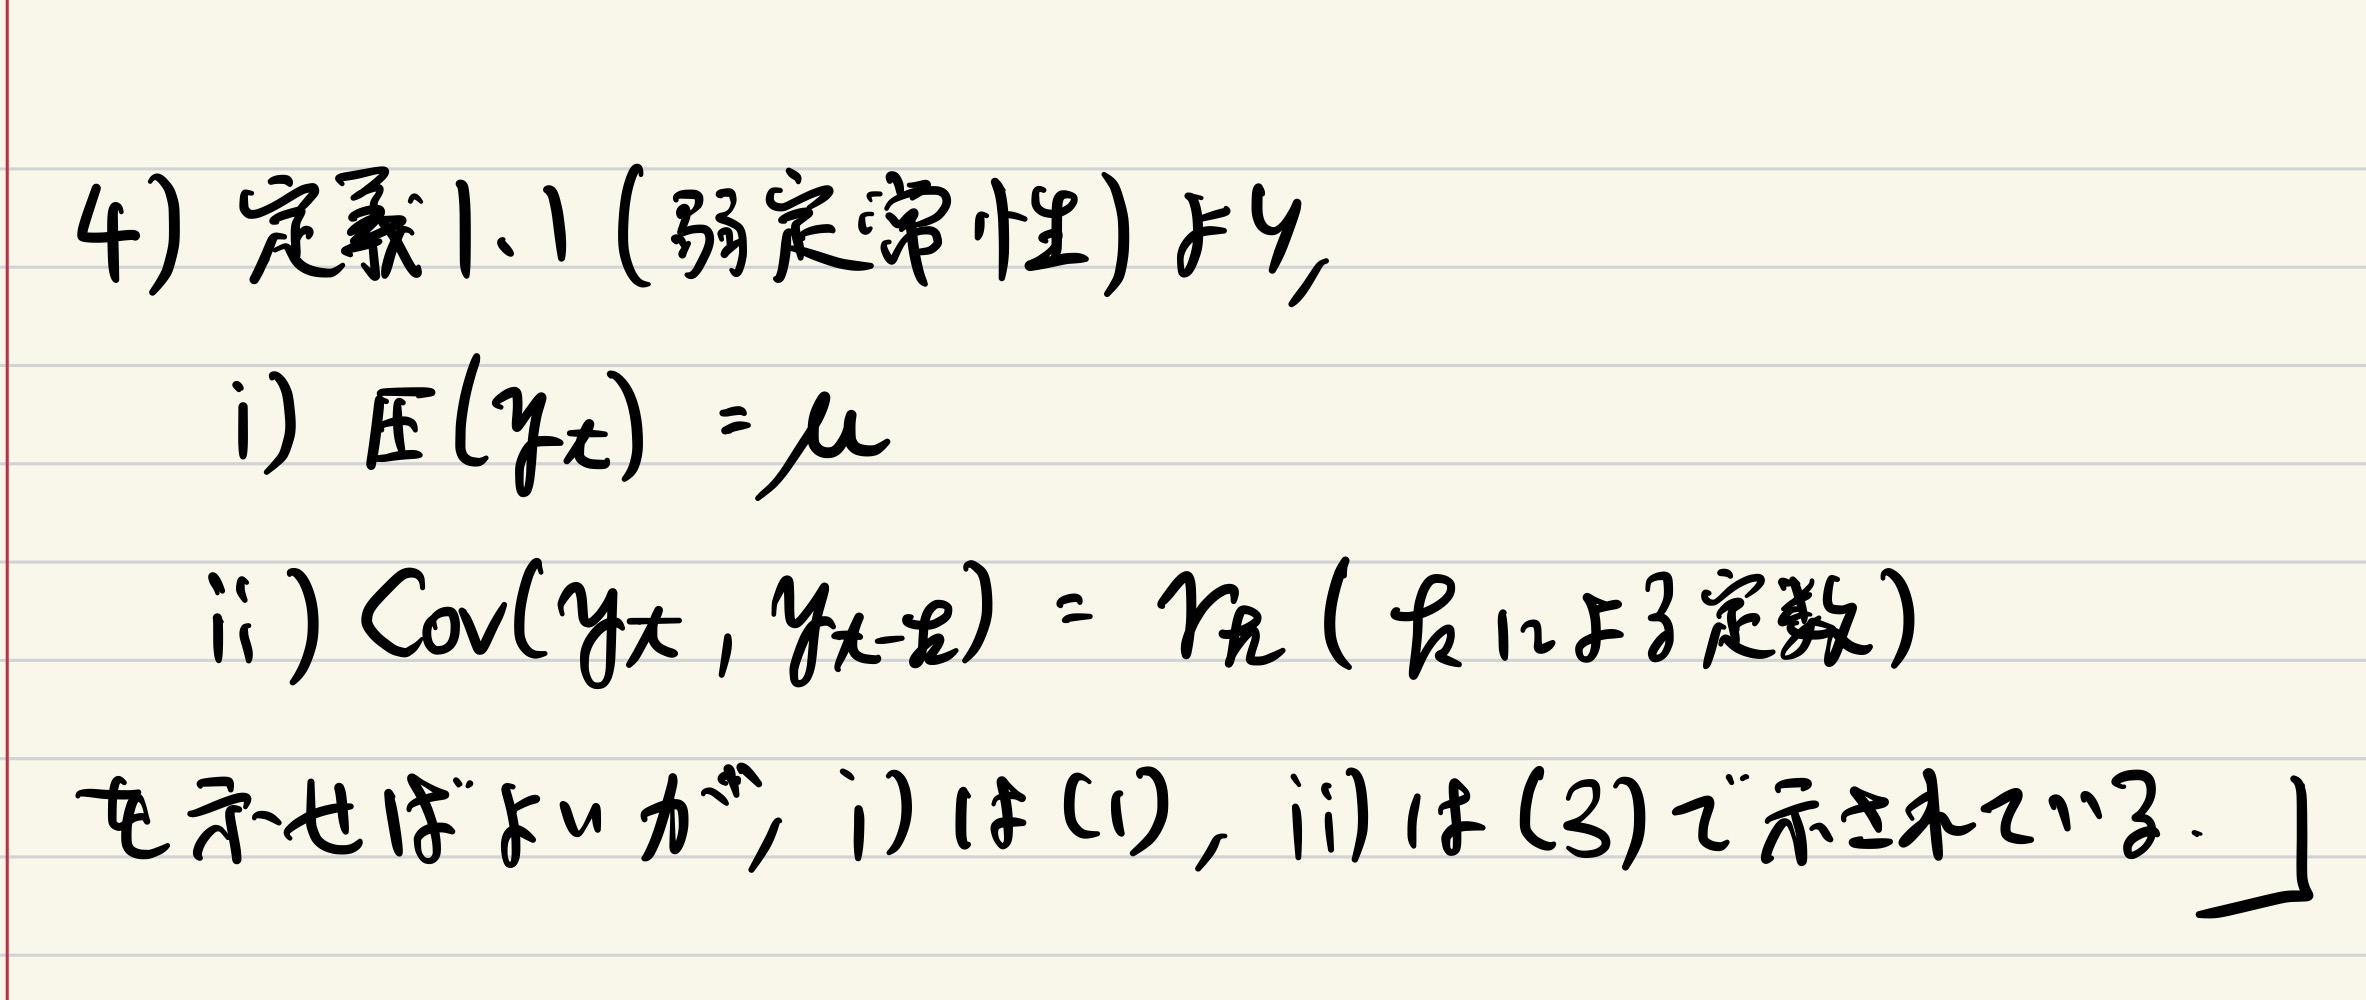 4) 定義1.1 (弱定常性) より,
i) E(y_t) = μ
ii) Cov(y_t, y_{t-k}) = γ_k (kによる定数)
を示せばよいが, i) は (1), ii) は (3) で示されている.